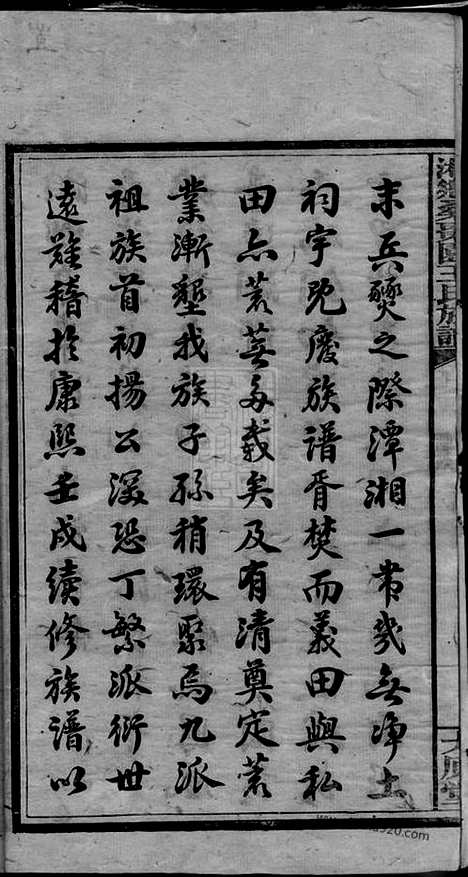 末兵燹之際潭湘一帶幾無淨土
祠宇既廢族譜胥焚而義田與私
田亦荒蕪多載矣及有清奠定荒
業漸墾我族子孫稍環聚焉九派
祖族首初揚公深恐丁繁派衍世
遠難稽於康熙壬戌續修族譜以
王氏族譜